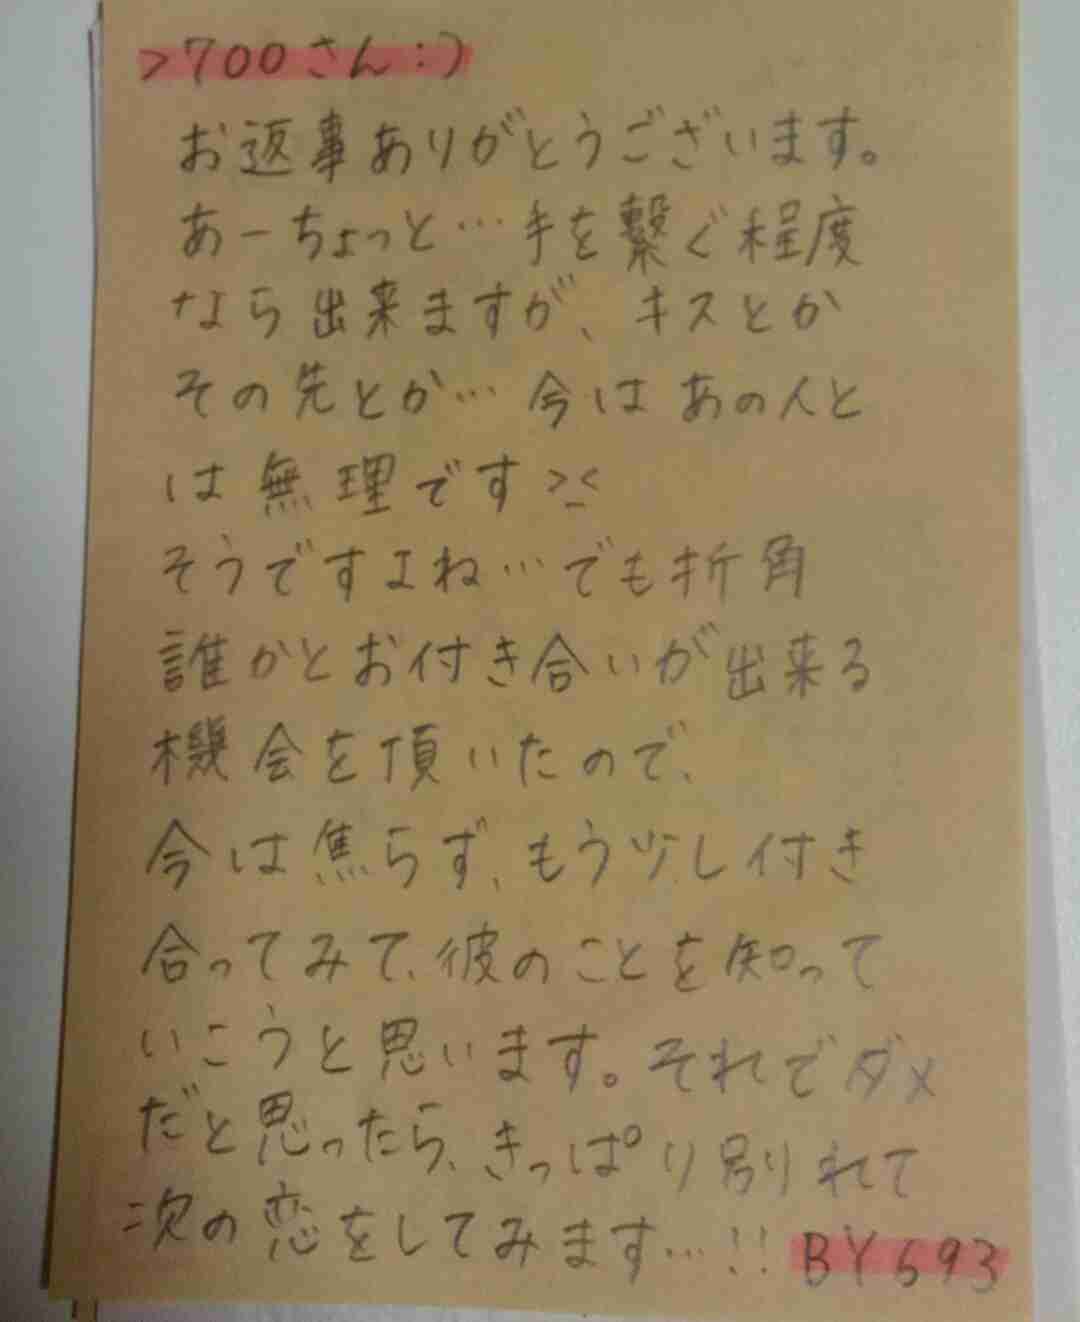 >700さん:)
お返事ありがとうございます。
あーちょっと…手を繋ぐ程度
なら出来ますが、キスとか
その先とか…今はあの人と
は無理です>_<
そうですよね…でも折角
誰かとお付き合いが出来る
機会を頂いたので、
今は焦らず、もう少し付き
合ってみて、彼のことを知って
いこうと思います。それでダメ
だと思ったら、きっぱり別れて
次の恋をしてみます…!! BY693